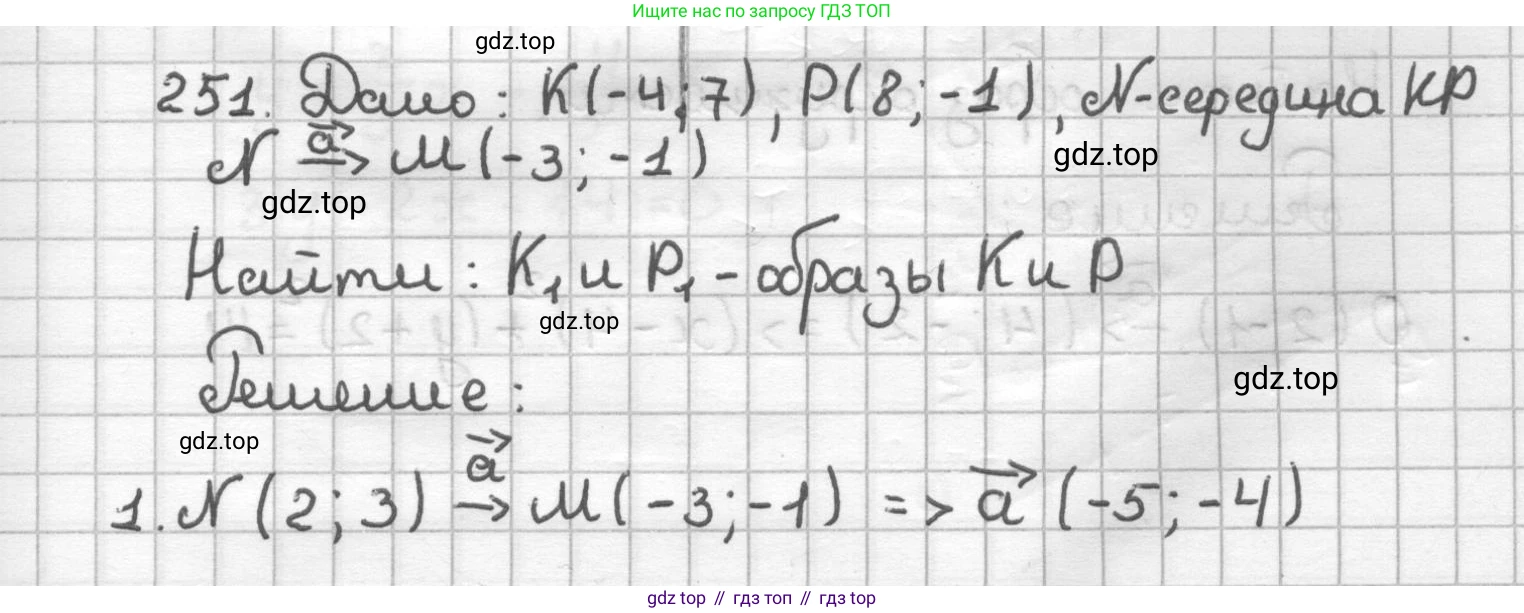 Ищите нас по запросу ГДЗ ТОП
gdz.top
251. Дано: K(-4;7), P(8;-1), N-середина KP
N →a⃗ M(-3;-1)
gdz.top
gdz.top
Найти: K₁ и P₁ - образы K и P
gdz.top
Решение:
gdz.top
gdz.top
1. N(2;3) →a⃗ M(-3;-1) => a⃗(-5;-4)
gdz top // гдз топ // гдз top